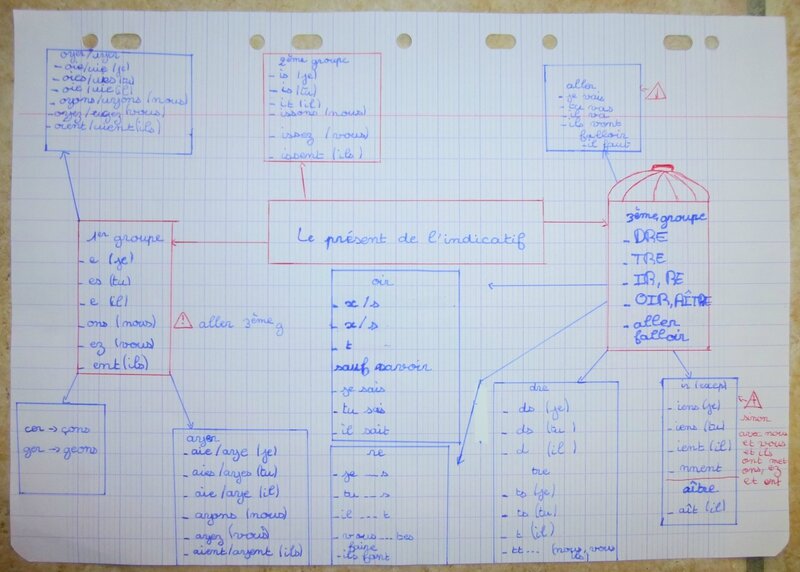 oyer/uyer
- oie/uie (je)
- oies/uies (tu)
- oie/uie (il)
- oyons/uyons (nous)
- oyez/uyez (vous)
- oient/uient (ils)
2ème groupe
- is (je)
- is (tu)
- it (il)
- issons (nous)
- issez (vous)
- issent (ils)
aller
- je vais
- tu vas
- il va
- ils vont
falloir
- il faut
Le présent de l'indicatif
1er groupe
- e (je)
- es (tu)
- e (il)
- ons (nous)
- ez (vous)
- ent (ils)
aller 3ème g
3ème groupe
- DRE
- TRE
- IR, RE
- OIR, AÎTRE
- aller
falloir
oir
- x/s
- x/s
- t
sauf savoir
- je sais
- tu sais
- il sait
cer → çons
ger → geons
ayer
- aie/aye (je)
- aies/ayes (tu)
- aie/aye (il)
- ayons (nous)
- ayez (vous)
- aient/ayent (ils)
re
- je ... s
- tu ... s
- il ... t
- vous ... tes
faire
- ils font
dre
- ds (je)
- ds (tu)
- d (il)
tre
- ts (je)
- ts (tu)
- t (il)
- tt... (nous, vous
ils)
ir (excep)
- iens (je)
- iens (tu)
- ient (il)
- nnent
aître
- aît (il)
sinon
avec nous
et vous
et ils
ont met
ons, ez
et ent